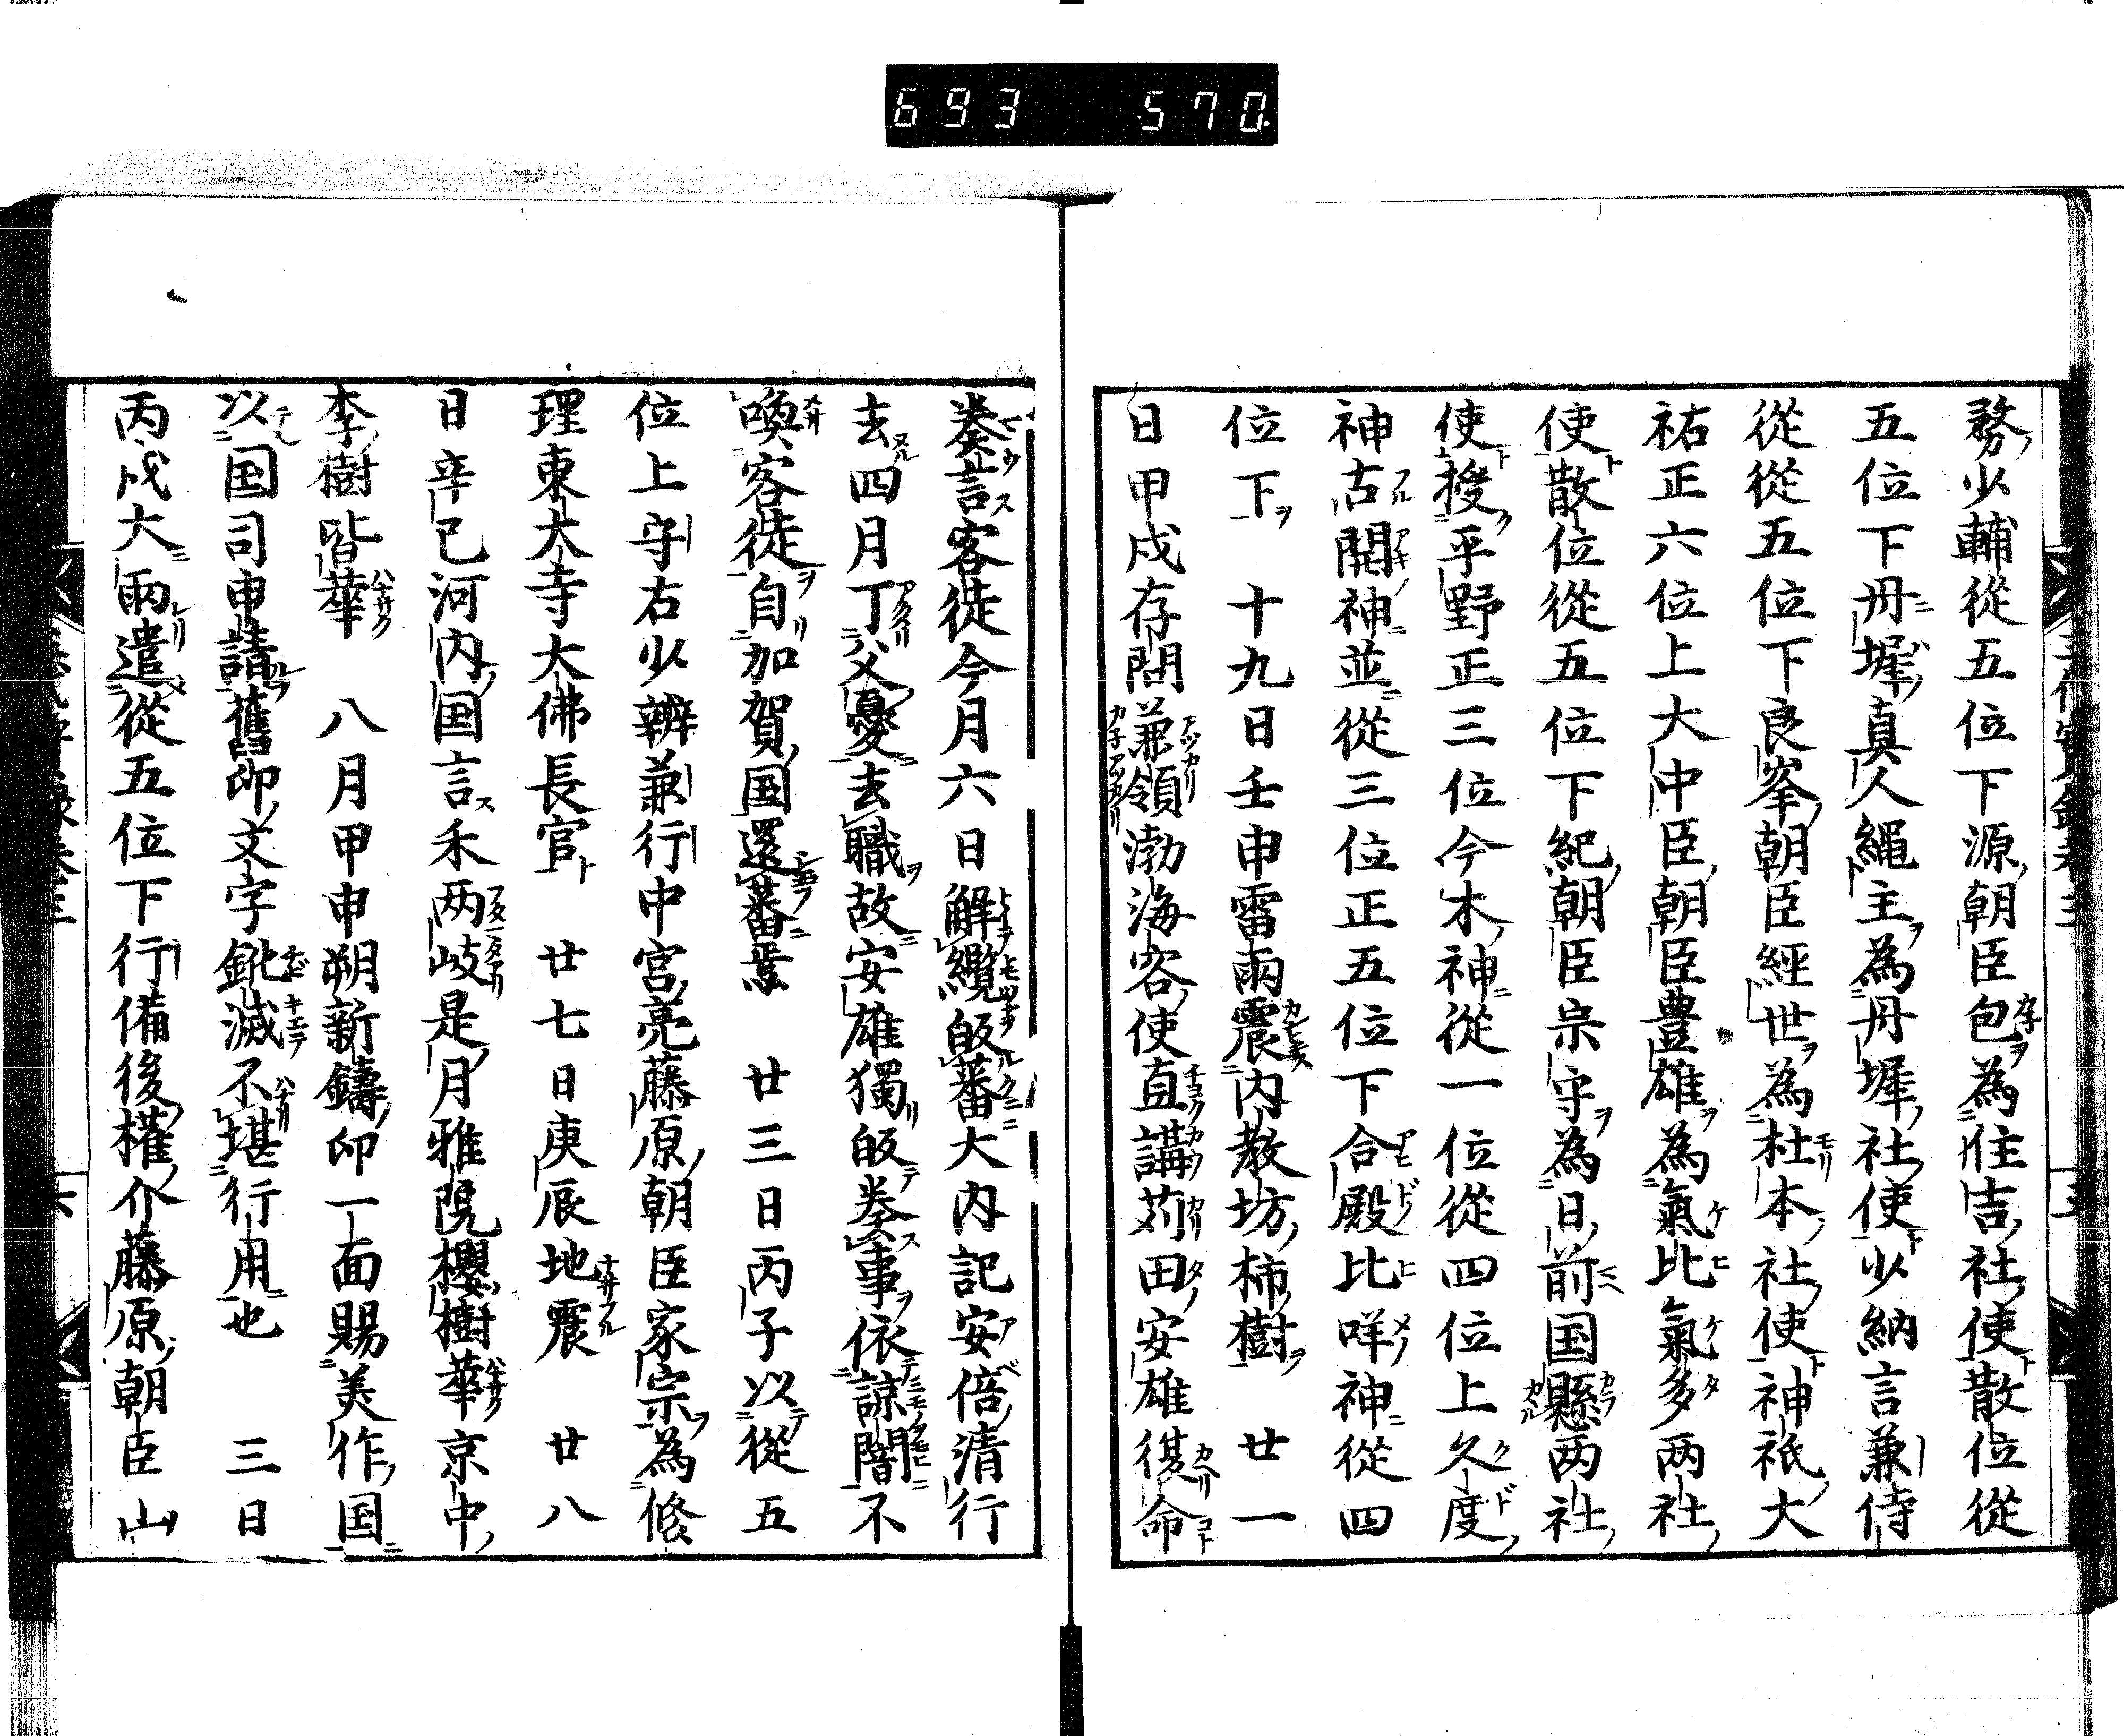 693 570
務少輔從五位下源朝臣包為住吉社使散位從
五位下丹墀真人繩主為丹墀社使少納言兼侍
從從五位下良峯朝臣經世為杜本社使神祇大
祐正六位上大中臣朝臣豊雄為氣比氣多两社
使散位從五位下紀朝臣宗守為日前国懸两社
使授平野正三位今木神從一位從四位上久度
神古開神並從三位正五位下合殿比咩神從四
位下　十九日壬申雷雨震内教坊柿樹　廿一
日甲戌存問兼領渤海客使直講苅田安雄復命
奏言客徒今月六日解纜皈蕃大内記安倍清行
去四月丁父憂去職故安雄獨皈奏事依諒闇不
喚客徒自加賀国還蕃焉　廿三日丙子以從五
位上守右少辨兼行中宮亮藤原朝臣家宗為修
理東大寺大佛長官　廿七日庚辰地震　廿八
日辛巳河内国言禾两岐是月雅院櫻樹華京中
李樹皆華　八月甲申朔新鑄印一面賜美作国
以国司申請舊印文字鈋滅不堪行用也　三日
丙戌大雨遣從五位下行備後權介藤原朝臣山